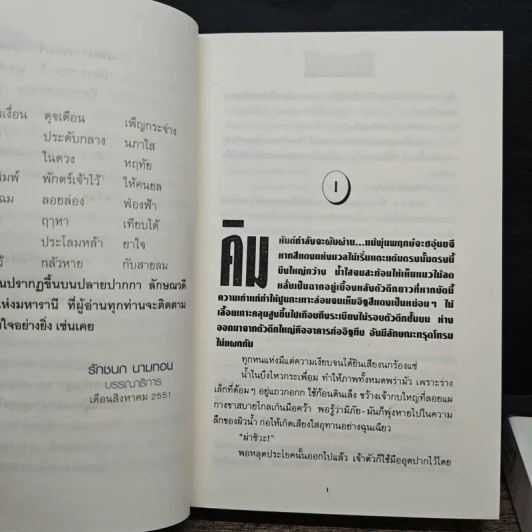 เงื่อน ดุจเดือน เพ็ญกระจ่าง
ประดับกลาง นภาใส
ในดวง หฤทัย
พิมพ์ พักตร์เจ้าไว้ ให้คนยล
โฉม ลอยล่อง ฟ่องฟ้า
ฤๅหา เทียบได้
ประโลมหล้า ยาใจ
กลัวหาย กับสายลม
นปรากฏขึ้นบนปลายปากกา ลักษณวดี
แห่งมหารานี ที่ผู้อ่านทุกท่านจะติดตาม
ใจอย่างยิ่ง เช่นเคย
รักชนก นามทอน
บรรณาธิการ
เดือนสิงหาคม 2551
1
คิม
หันต์กำลังจะผันผ่าน... แม้พุ่มพฤกษ์จะชอุ่มขจี
หากสีแดงแห่งมวลไม้เริ่มแตะแต้มตรงนั้นตรงนี้
บึงใหญ่กว้าง น้ำใสจนสะท้อนให้เห็นแนวไม้ลด
หลั่นเป็นฉากอยู่เบื้องหลังตัวตึกยาวที่หากขยับนี้
ความเก่าแก่ทำให้ปูนกะเทาะล่อนจนเห็นอิฐสีแดงเป็นหย่อมๆ ไม้
เลื้อยเกาะคลุมสูงขึ้นไปเกือบถึงระเบียงไม้รอบตัวตึกชั้นบน ห่าง
ออกมาจากตัวตึกใหญ่คืออาคารก่ออิฐทึบ อันมีลักษณะทรุดโทรม
ไม่แผกกัน
ทุกหนแห่งมีแต่ความเงียบจนได้ยินเสียงนกร้องแซ่
น้ำในบึงไหวกระเพื่อม ทำให้ภาพทั้งหมดพร่ามัว เพราะร่าง
เล็กที่ด้อมๆ อยู่แถวกอกก ใช้ก้อนดินเล็ง ขว้างเจ้ากบใหญ่ที่ลอยแผ่
กางขาสบายใกล้เกินมือคว้า พอรู้ว่ามีภัย-มันก็พุ่งหายไปในความ
ลึกของผิวน้ำ ก่อให้เกิดเสียงใสอุทานอย่างฉุนเฉียว
"ผ่าชิวะ!"
พอหลุดประโยคนั้นออกไปแล้ว เจ้าตัวก็ใช้มืออุดปากไว้โดย
1